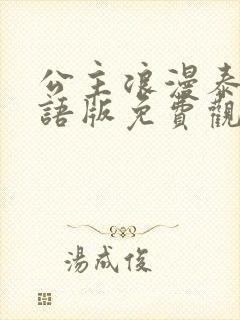 公主浪漫泰
語版免費觀
湯成俊